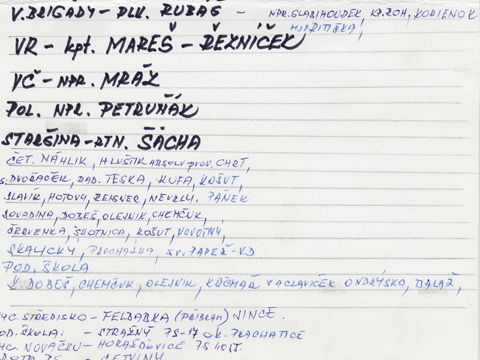 V. BRIGÁDY - PLK. RUBAŠ - NPR. SLABIHOUDEK, KP. ROH, KORIENOK
VR - kpt. MAREŠ - ŘEZNÍČEK
VČ - NPR. MRÁZ
POL. NPR. PETRUŇÁK
STARŠINA - RTN. ŠÁCHA
ČET. NÁHLIK, HLUŠTIK ABSOLV prov. CHRT,
S. DVOŘAČEK, RAD. TESKA, KUFA, KOŠUT
SLAVÍK, HOTOVÝ, ZEISNER, NEVRLÝ. PÁNEK
SOVADINA, DOBEŠ, OLEJNIK, CHEMČUK,
ČERVENKA, SKOTNICA, KOŠUT, NOVOTNÝ,
SKALICKÝ, PROCHÁZKA, SV. PAPEŽ - VD
POD. ŠKOLA
DOBEŠ, CHEMČUK, OLEJNIK, KRČMAŘ VACLAVIČEK ONDRÝSKA, BALÁŽ,
VÝC. STŘEDISKO - FELBABKA (PŘÍBRAM) JINCE.
POD. ŠKOLA: - STRAŠNÝ 75-17 OK. PRACHATICE
NOVÁČKŮ - HORAŽĎOVICE
- LETVINY